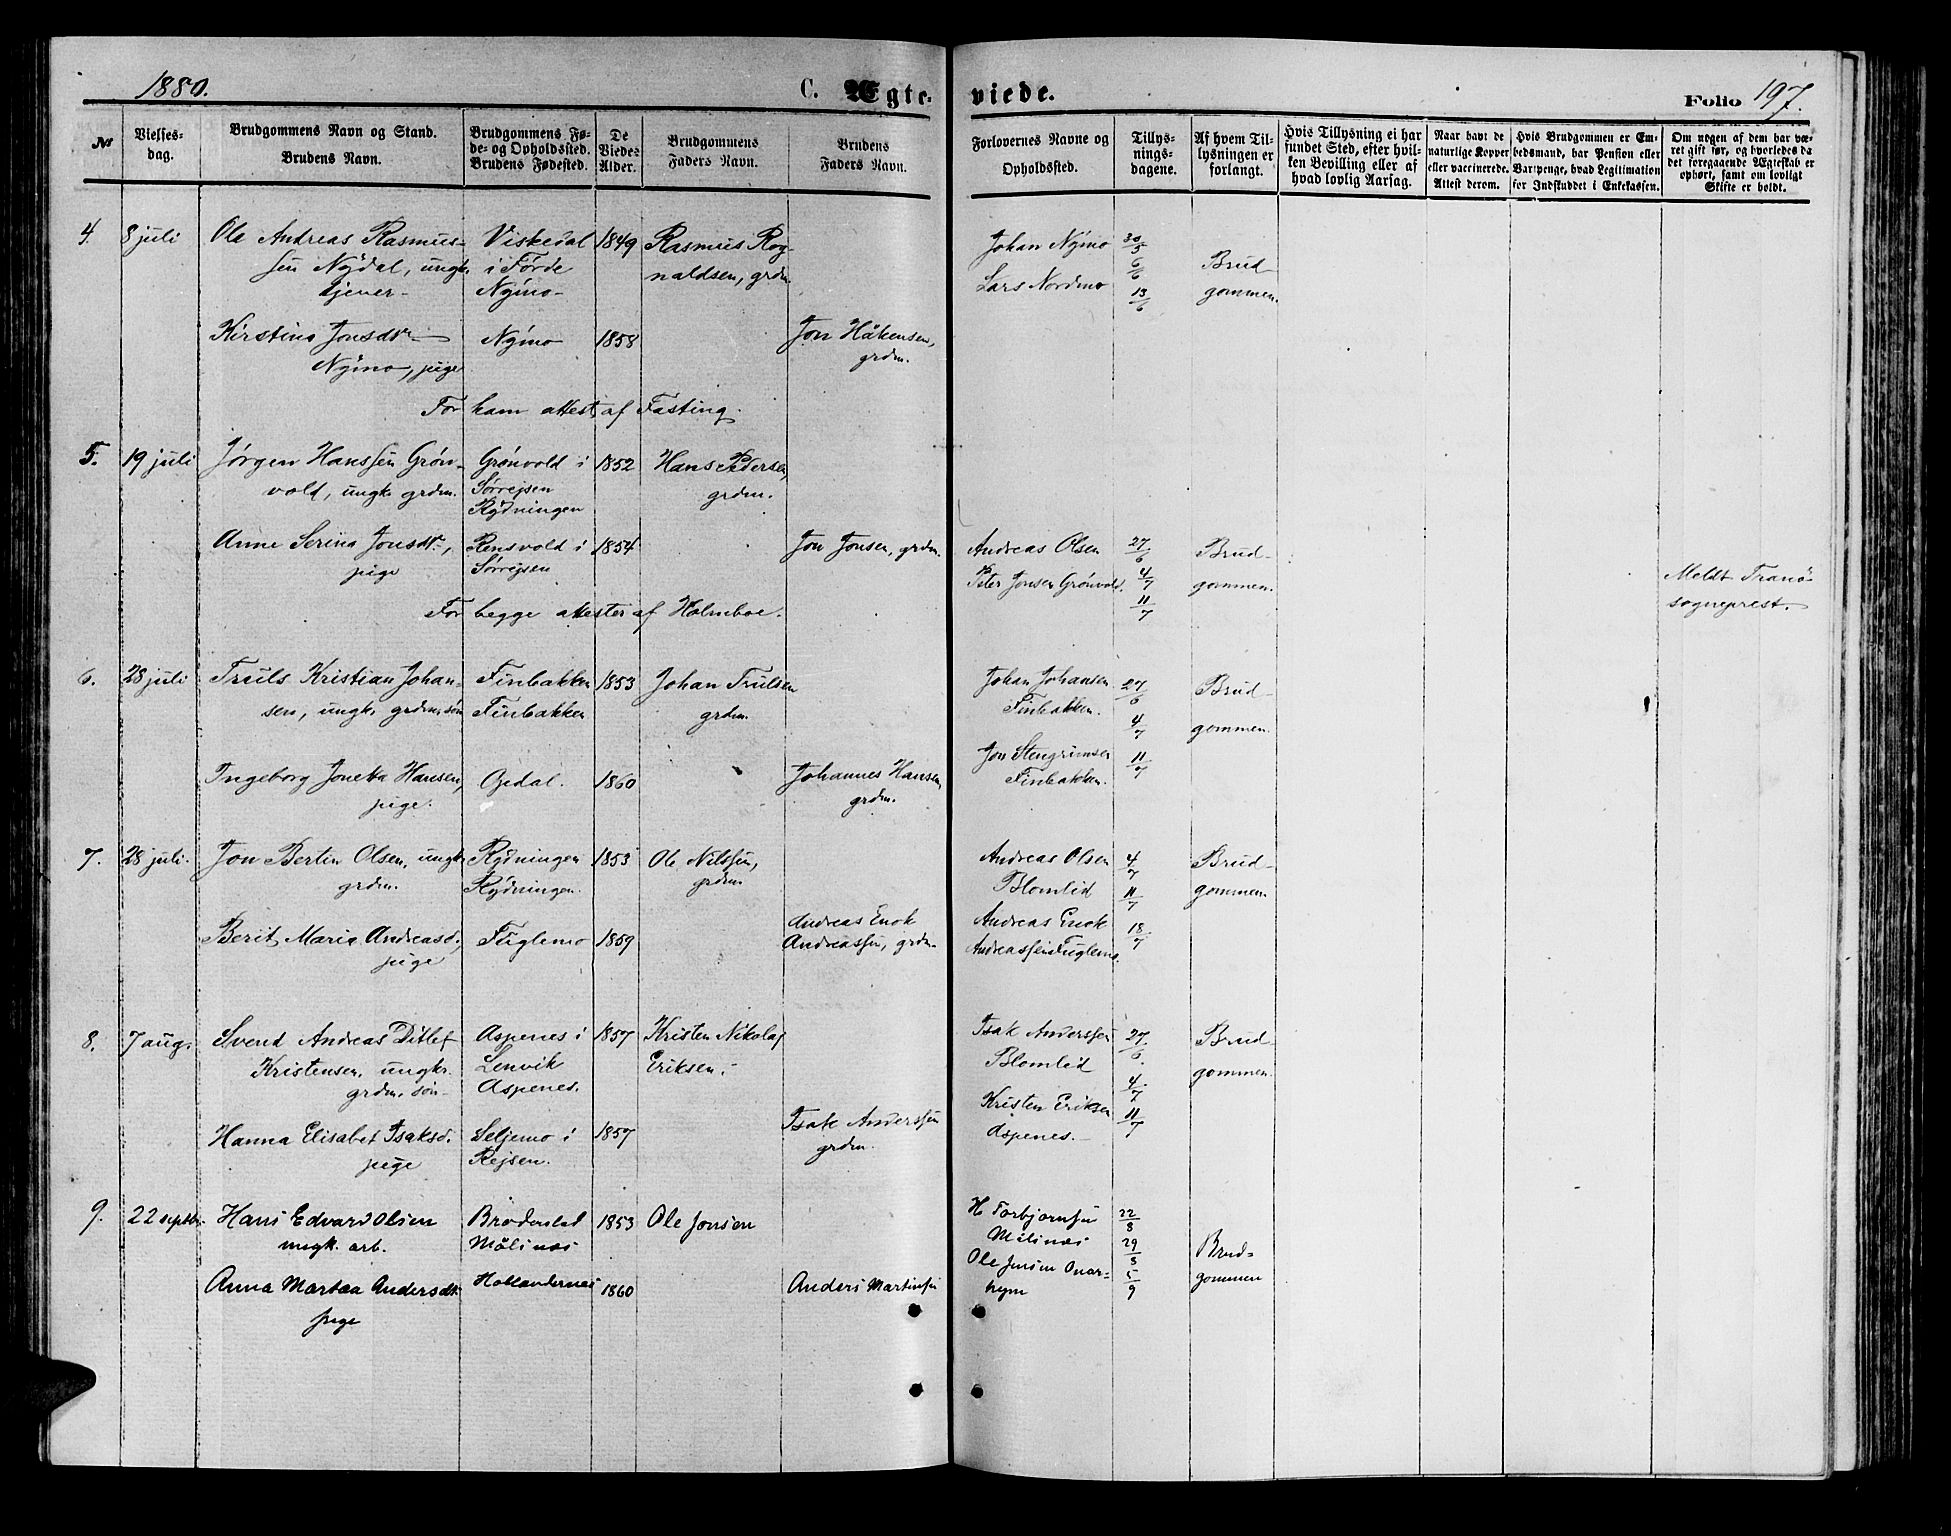 1880.
C. Ægte-
viede.
Folio 197.
№
Vielses-
dag.
Brudgommens Navn og Stand.
Brudens Navn.
Brudgommens Fø-
de- og Opholdssted.
Brudens Fødested.
De
Viedes
Alder.
Brudgommens
Faders Navn.
Brudens
Faders Navn.
Forlovernes Navne og
Opholdssted.
Tillys-
nings-
dagene.
Af hvem Til-
lysningen er
forlangt.
Hvis Tillysning ei har
fundet Sted, efter hvil-
ken Bevilling eller af
hvad lovlig Aarsag.
Naar havt de
naturlige Kopper
eller vaccinerede.
Attest derom.
Hvis Brudgommen er Em-
bedsmand, har Pension eller
Vartpenge, hvad Legitimation
for Indskuddet i Enkekassen.
Om nogen af dem har væ-
ret gift før, og hvorledes da
det foregaaende Ægteskab er
ophørt, samt om lovligt
Skifte er holdt.
4. 8 juli
Ole Andreas Rasmus-
sen Nýdal, ungk.
tjener
Viskedal
i Førde
Nýmo
1849
Rasmus Rog-
naldsen, grdm.
Johan Nýmo
Lars Nordmo
30/5
6/6
13/6
Brud-
gommen.
Kirstine Jonsdtr.
Nýmo, pige
Nýmo
1858
Jon Håkensen,
grdm.
For ham attest af Fasting.
5. 19 juli
Jørgen Hanssen Grøn-
vold, ungk. grdm.
Grønvold i
Sørrejsen
Rýdningen
1852
Hans Pedersen,
grdm.
Anne Serina Jonsdtr.,
pige
Rensvold i
Sørrejsen
1854
Jon Jonsen, grdm.
Andreas Olsen
Peter Jonsen Grønvold.
27/6
4/7
11/7
Brud-
gommen.
Meldt Tranø
sogneprest.
For begge attester af Holmboe.
6. 28 juli
Truls Kristian Johan-
sen, ungk. grdm. søn
Finbakken
Finbakken
1853
Johan Trulsen
grdm.
Johan Johansen
Finbakken.
Jon Stengrimsen
Finbakken.
27/6
4/7
11/7
Brud-
gommen.
Ingeborg Jonetta Hansen,
pige.
Gjedal.
1860
Johannes Hansen
grdm.
7. 28 juli.
Jon Bertin Olsen, ungk.
grdm.
Rýdningen
Rýdningen.
1853
Ole Nilssen,
grdm.
Andreas Olsen
Blomlid
Andreas Enok
Andreassen Fuglemo.
4/7
11/7
18/7
Brud-
gommen.
Berit Maria Andreasd.,
pige
Fuglemo
1859
Andreas Enok
Andreassen, grdm.
8. 7 aug.
Svend Andreas Ditlef
Kristensen, ungkr.
grdm. søn
Aspenes i
Lenvik
Aspenes.
1857
Kristen Nikolaj
Eriksen.
Isak Anderssen
Blomlid
Kristen Eriksen
Aspenes.
27/6
4/7
11/7
Brud-
gommen.
Hanna Elisabet Isaksd.
pige
Seljemo i
Rejsen.
1857
Isak Anderssen
grdm.
9. 22 septbr.
Hans Edvard Olsen
ungk. arb.
Målsnæs
1853
Ole Jonsen
H Torbjørnsen
Målsnæs
Ole Jensen
22/8
29/8
5/9
Brud-
gommen
Anna Martea Andersdtr
pige
1860
Anders Martinsen